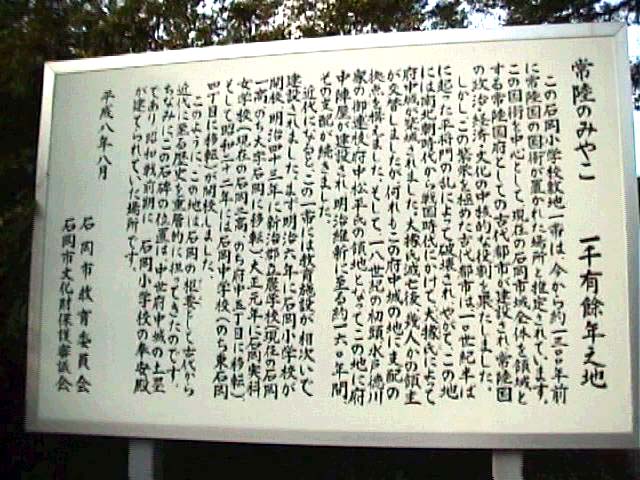 常陸のみやこ　一千有餘年之地
この石岡小学校敷地一帯は、今から約一三〇〇年前
に常陸国の国衙が置かれた場所と推定されています。
この国衙を中心として、現在の石岡市域全体を領域と
する常陸国府としての古代都市が建設され、常陸国
の政治・経済・文化の中核的な役割を果たしました。
しかし、この繁栄を極めた古代都市は一〇世紀半ば
に起った平将門の乱によって破壊され、やがて、この地
には南北朝時代から戦国時代にかけて、大掾氏によって
府中城が築城されました。大掾氏滅亡後、幾人かの領主
が交替しましたが、何れもこの府中城の地に支配の
拠点を構えました。そして、一八世紀の初頭、水戸徳川
家の御連枝府中松平氏の領地となってこの地に府
中陣屋が建設され、明治維新に至る約一六〇年間、
その支配が続きました。
近代になるとこの一帯には教育施設が相次いで
建設されました。まず明治六年に石岡小学校が
開校、明治四十三年に新治郡立農学校(現在の石岡
一高、のち大字石岡に移転)、大正元年に石岡実科
女学校(現在の石岡二高、のち府中五丁目に移転)、
そして昭和二十二年には石岡中学校(のち東石岡
四丁目に移転)が開校しました。
このように、この地は石岡の枢要として古代から
近代に至る歴史を重層的に担ってきたのです。
ちなみに、この石碑の位置は、中世府中城の土塁
であり、昭和戦前期に、石岡小学校の奉安殿
が建てられていた場所です。
平成八年八月
石岡市教育委員会
石岡市文化財保護審議会